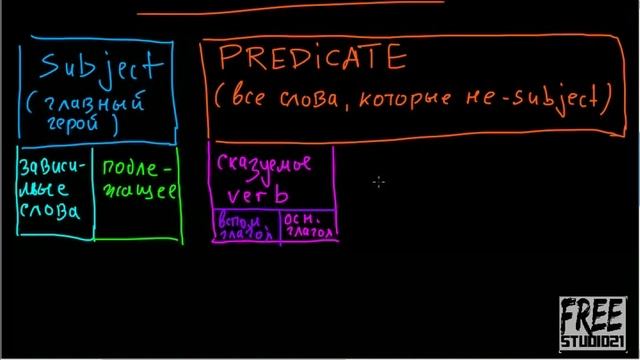 Subject
(главный
герой)
PREDiCATE
(все слова, которые не-subject)
зависи-
мые
слова
подле-
жащее
сказуемое
verb
вспом.
глагол
осн.
глагол
FREE
STUDIO21